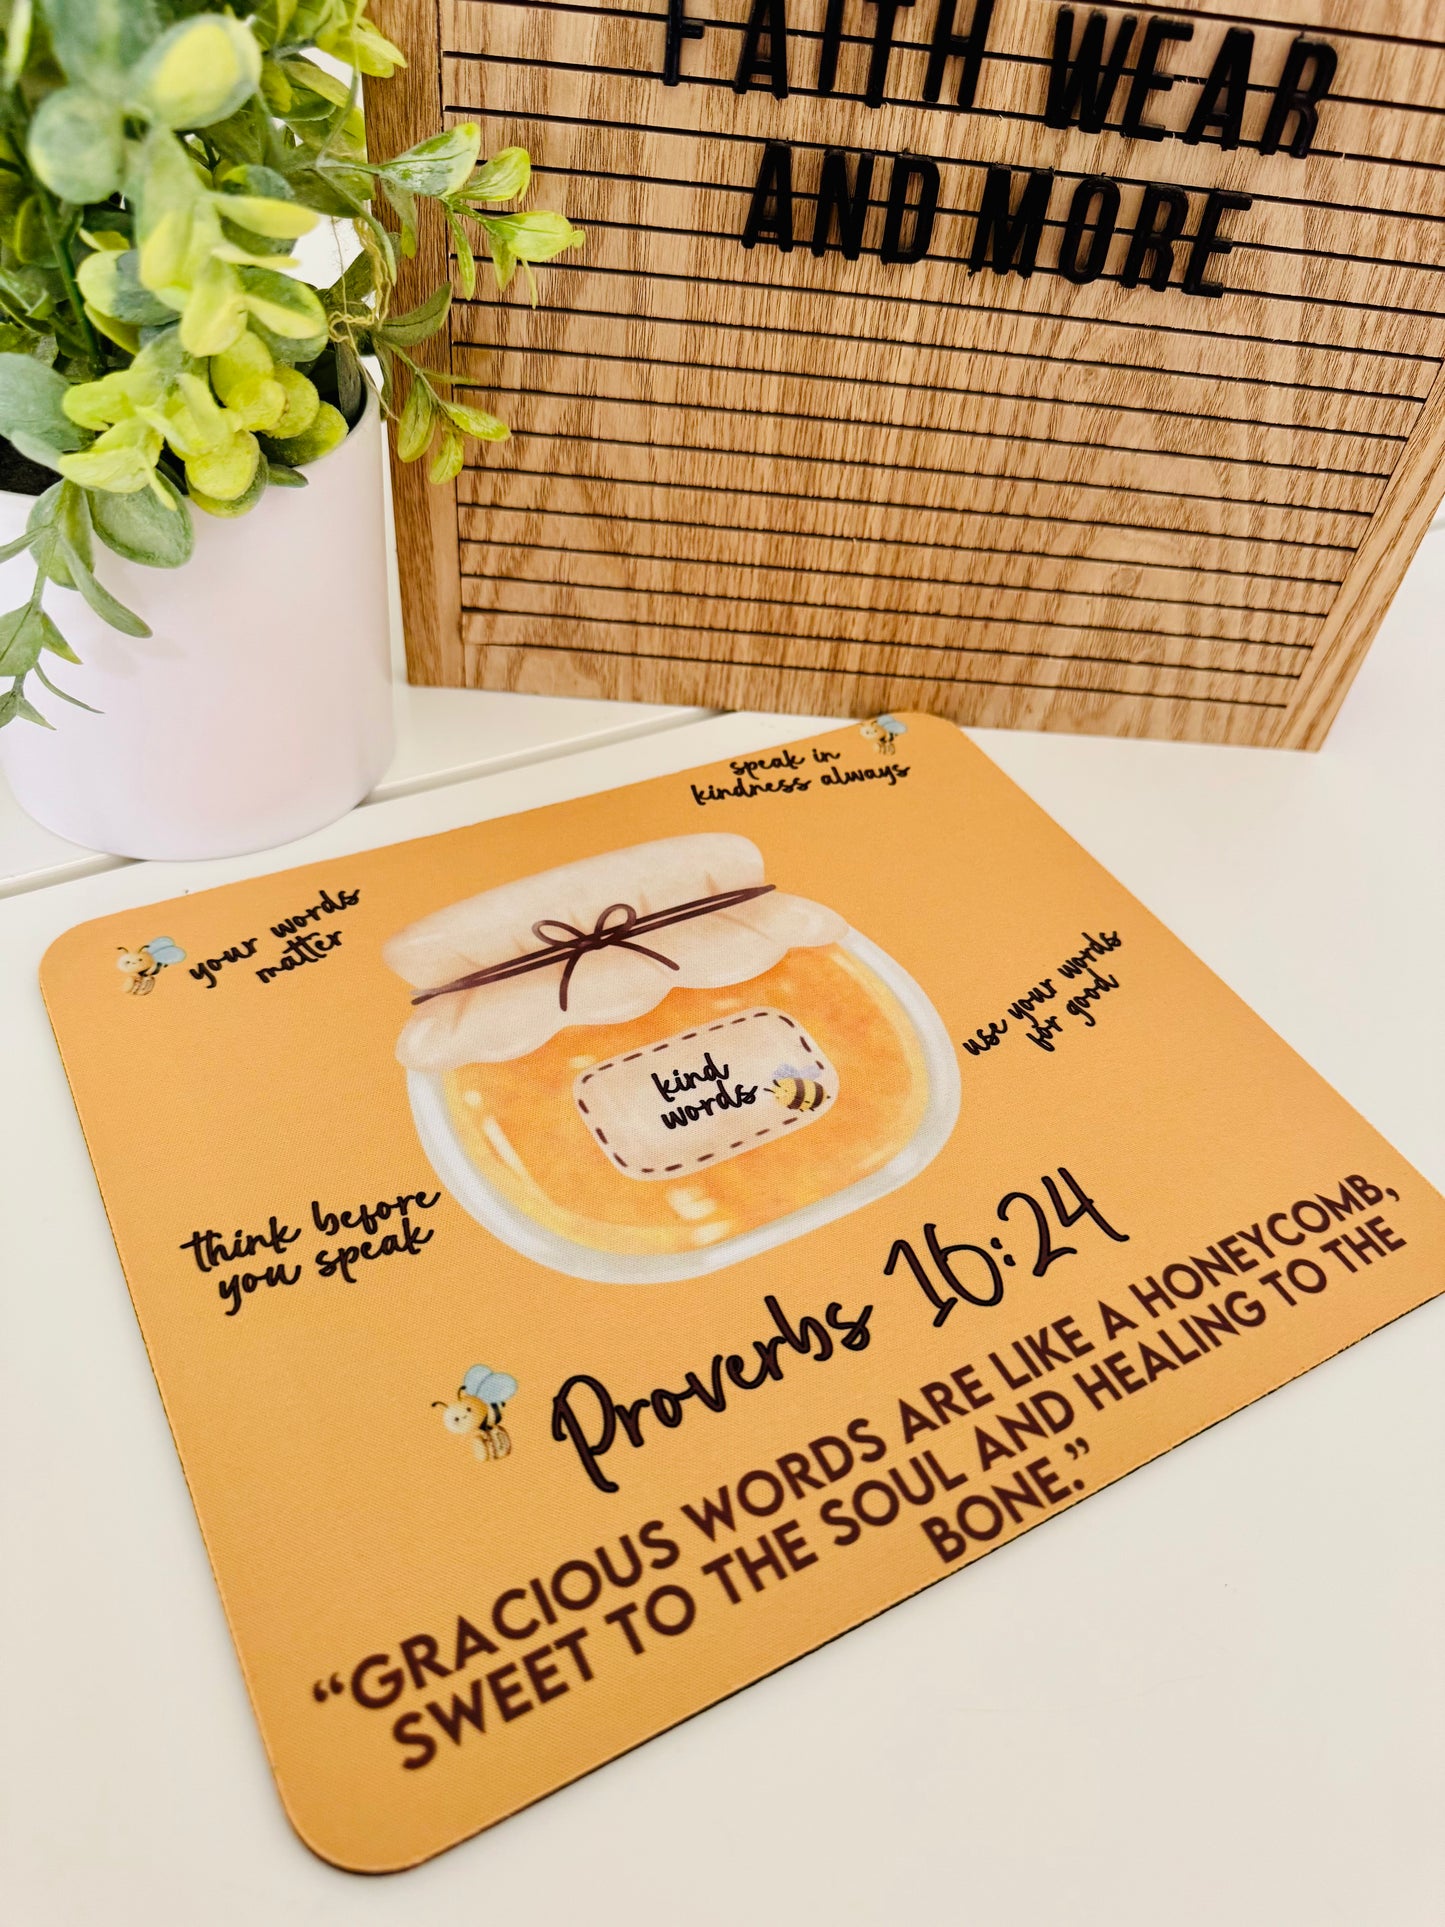 FAITH WEAR
AND MORE
speak in
kindness always
your words
matter
use your words
for good
kind
words
think before
you speak
Proverbs 16:24
“GRACIOUS WORDS ARE LIKE A HONEYCOMB,
SWEET TO THE SOUL AND HEALING TO THE
BONE.”